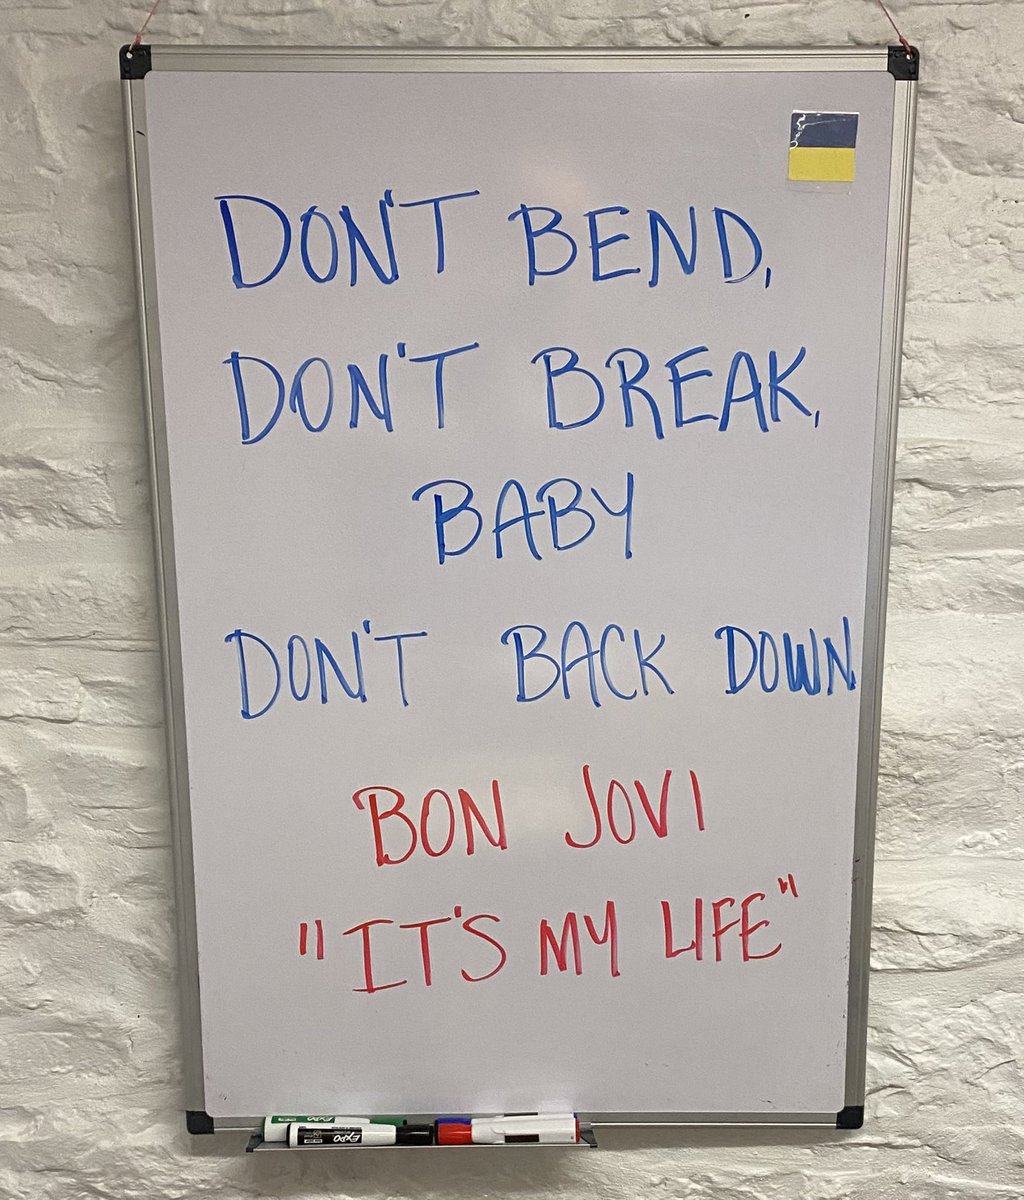 DON'T BEND,
DON'T BREAK,
BABY
DON'T BACK DOWN
BON JOVI
"IT'S MY LIFE"
EXPO
EXPO